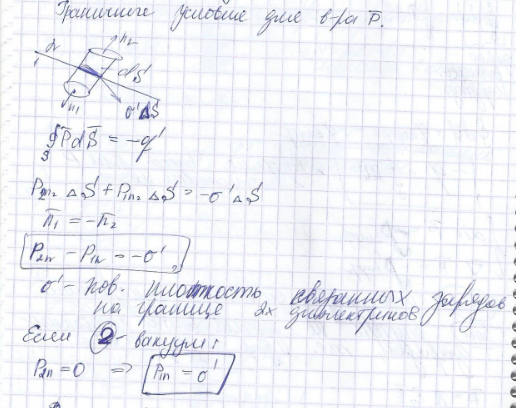 Граничные условие для в-ра P̅.
d
n₂
dS
n₁
σ'ΔS
∮P̅dS̅ = -q'
S
P₂n₂ΔS + P₁n₂ΔS = -σ'ΔS
n̅₁ = -n̅₂
P₂n - P₁n = -σ',
σ' - пов. плотность связанных зарядов
на границе 2х диэлектриков
Если 2 - вакуум:
P₂n = 0 => P₁n = σ'